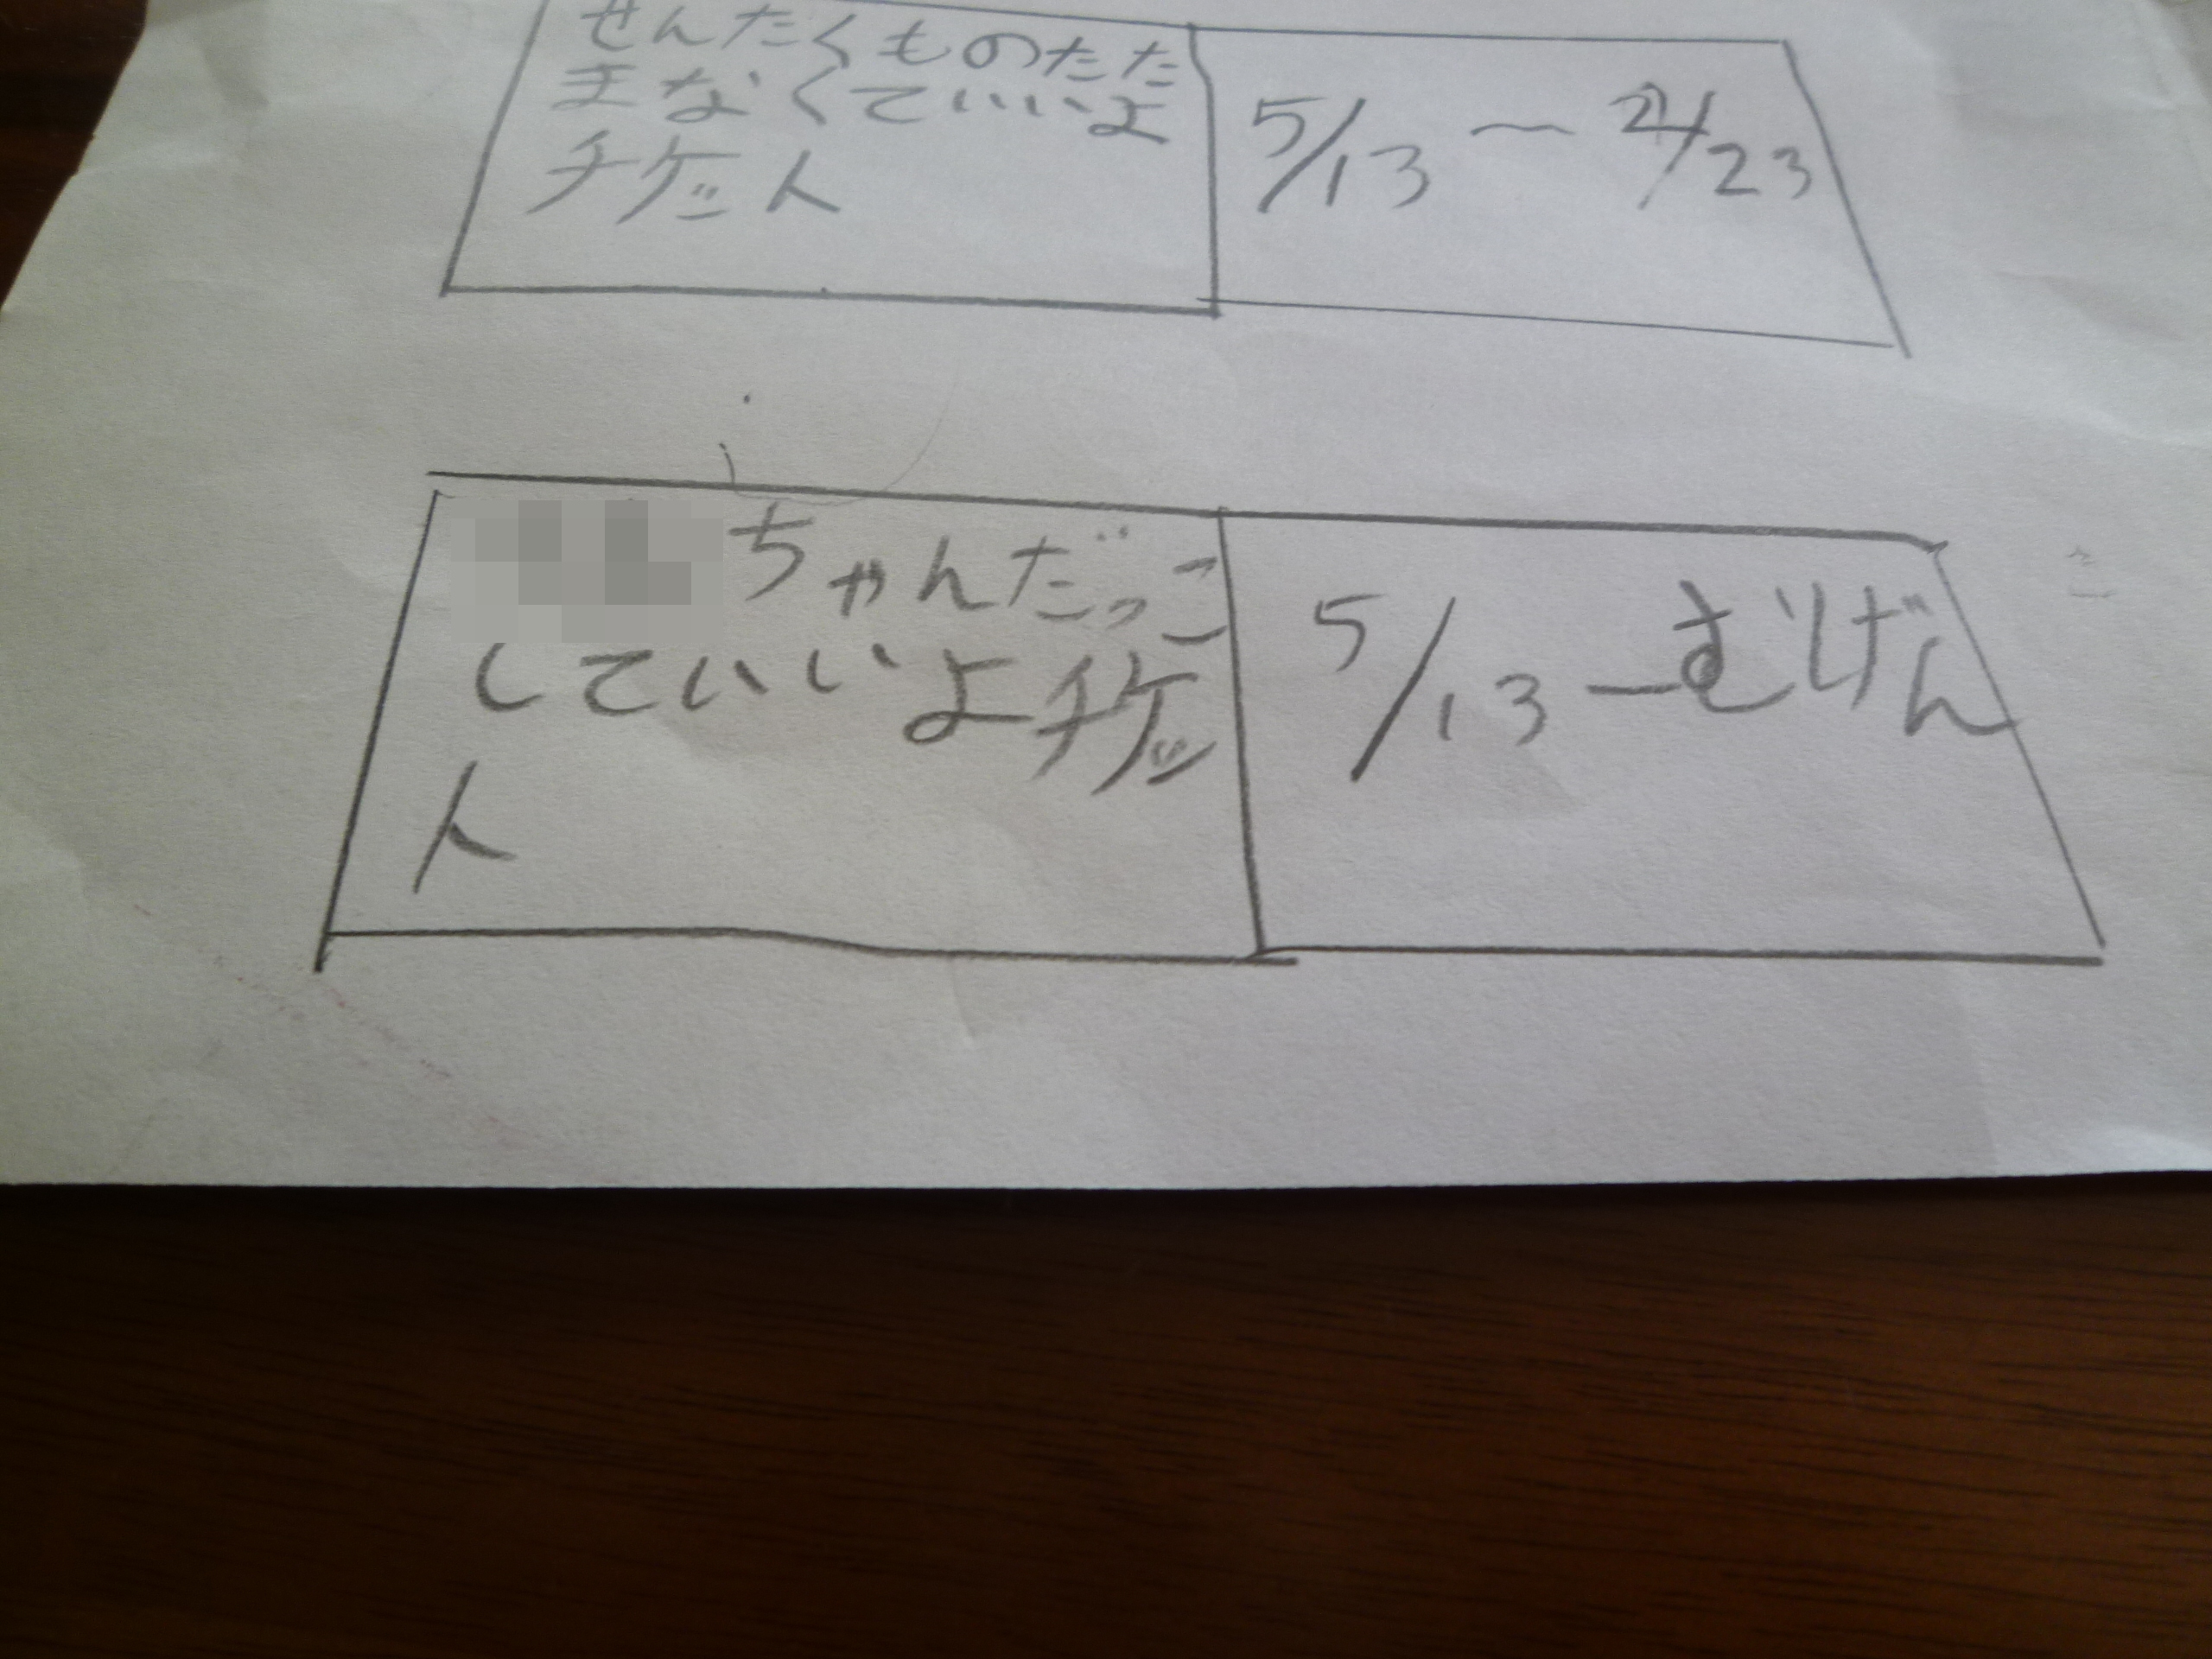 せんたくものたた
まなくていいよ
チケット
5/13〜2/23
ちゃんだっこ
していいよチケッ
ト
5/13〜むげん